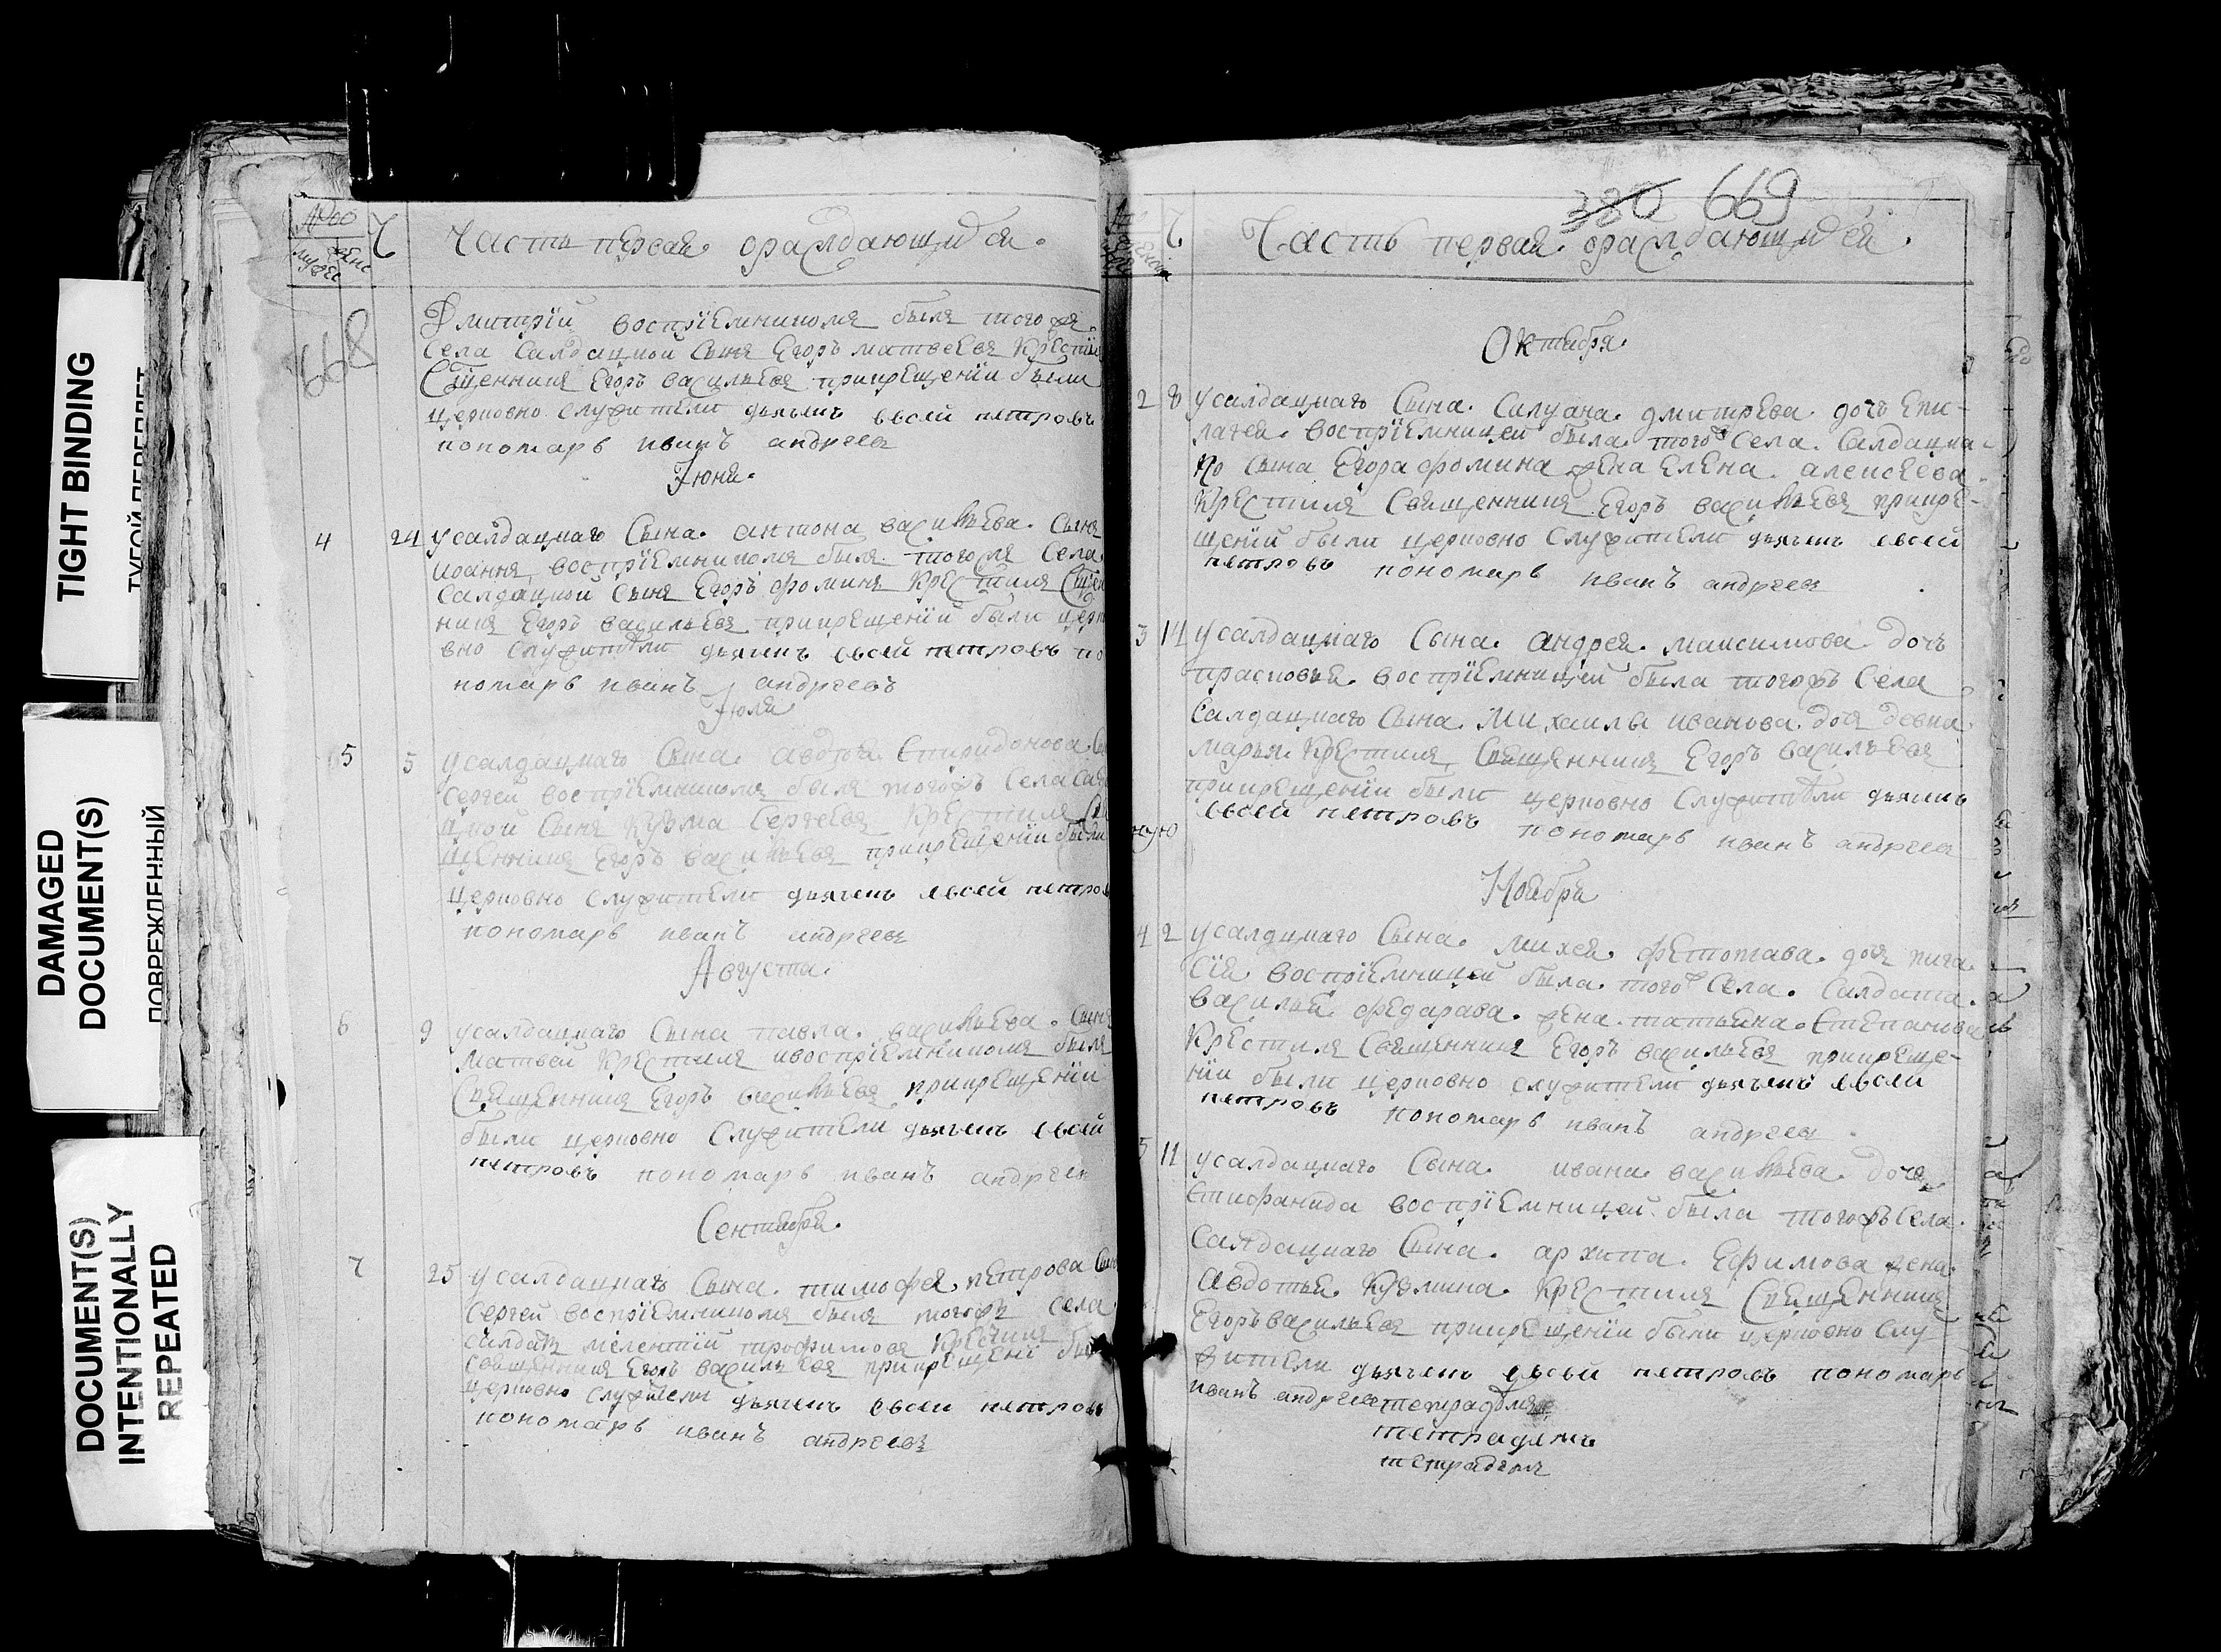 TIGHT BINDING
ТУГОЙ ПЕРЕПЛЕТ
DAMAGED
DOCUMENT(S)
ПОВРЕЖДЕННЫЙ
DOCUMENT(S)
INTENTIONALLY
REPEATED
Часть первая ораждающидся
668
Дмитрїй воспрїемникомъ былъ того же
села салдацкой сынъ Егоръ матвеевъ крести
Сщенникъ Егоръ васильевъ прикрещенїи были
церковно служители дьячекъ евсей петровъ
пономарь иванъ андреев
Июня
4 24 у салдацкаго сына антона васильева сынъ
иоаннъ воспрїемникомъ былъ того села
салдацкой сынъ Егоръ фоминъ крестилъ Сщен
никъ Егоръ васильевъ прикрещенїи были церко
вно служители дьячекъ евсей петровъ по
номарь иванъ андреевъ
Июля
5 5 у салдацкаго сына Спиридонова
Сергей воспрїемникомъ былъ тогожъ села сал
цкой сынъ Кузма Сергеевъ крестилъ
щенникъ Егоръ васильевъ прикрещенїи были
церковно служители дьячекъ евсей петров
пономарь иванъ андреев
Августа
6 9 у салдацкаго сына павла васильева сынъ
матвей крестилъ ивоспрїемникомъ былъ
Священникъ Егоръ васильевъ прикрещенїи
были церковно служители дьячекъ евсей
петровъ пономарь иванъ андреев
Сентября
7 25 у салдацкаго сына тимофея петрова сын
Сергей воспрїемникомъ былъ тогожъ села
салдатъ мелентїй трофимовъ крестилъ
священникъ Егоръ васильевъ прикрещенї бы
церковно служители дьячекъ евсей петровъ
пономарь иванъ андреевъ
380 669
Часть первая ораждающидся
Октября
2 8 у салдацкаго сына Силуана дмитрева дочь Ени-
лагея воспрїемницей была того села салдацка-
ко сына Егора фомина жена Елена алексеева
крестилъ Священникъ Егоръ васильевъ прикре-
щенїй были церковно служители дьячекъ евсей
петровъ пономарь иванъ андреев
3 14 у салдацкаго сына андрея максимова дочь
прасковья воспрїемницей была тогожъ села
салдацкаго сына михаилы иванова дочь девка
марья крестилъ Священникъ Егоръ васильевъ
прикрещенїи были церковно служители дьячекъ
евсей петровъ пономарь иванъ андреев
Ноября
4 2 у салдцкаго сына михея фетотава дочь
сїя воспрїемницей была того села салдата
василья федарава жена татьяна Степанова
крестилъ Священникъ Егоръ васильевъ прикреще-
нїи были церковно служители дьячекъ евсей
петровъ пономарь иванъ андреев
5 11 у салдацкаго сына ивана васильева дочь
Епифанида воспрїемницей была тогожъ села
салдацкаго сына архипа Ефимова жена
Авдотья кузмина крестилъ Священникъ
Егоръ васильевъ прикрещенїи были церковно слу
жители дьячекъ евсей петровъ пономарь
иванъ андреев тетрадем
тетрадемъ
тетрадем